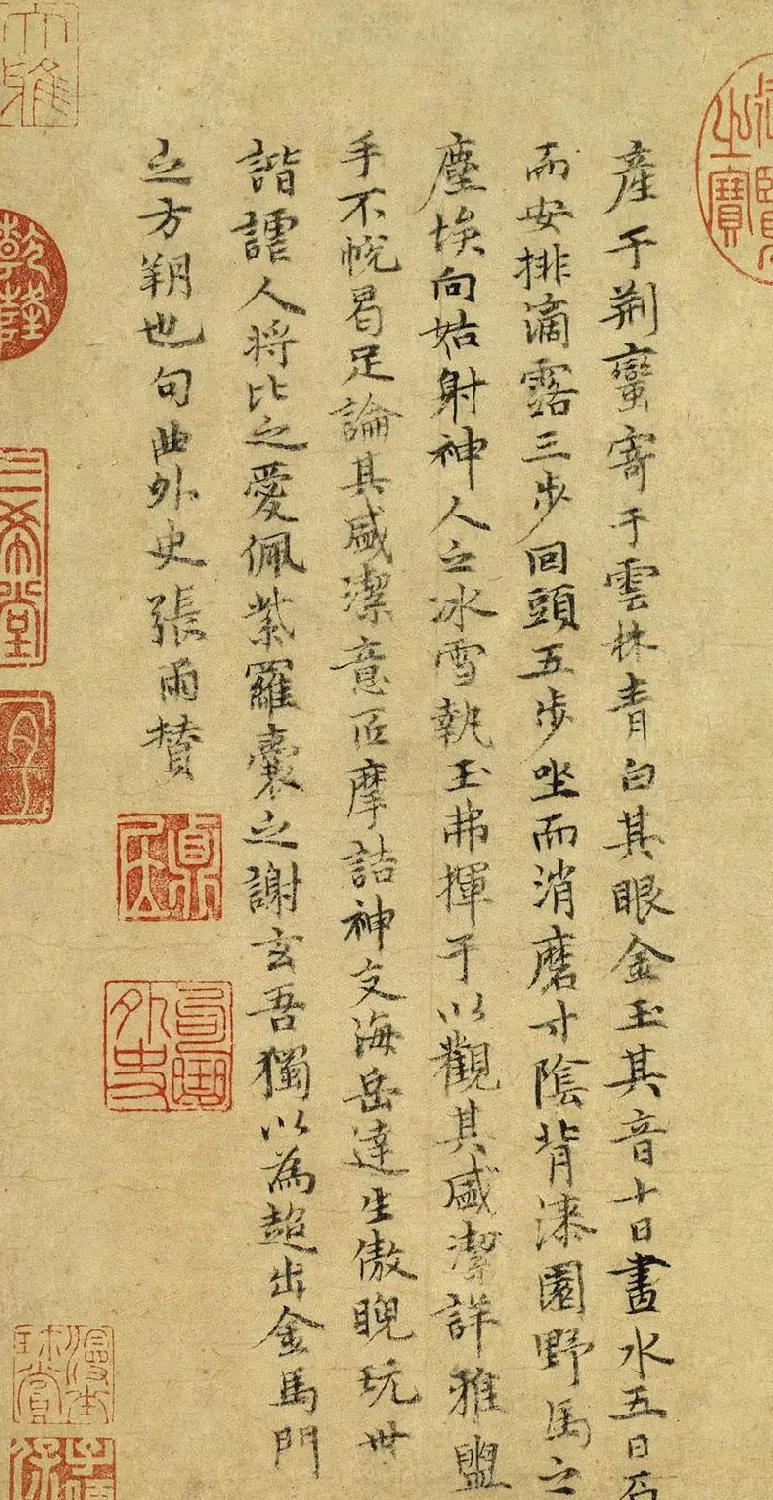 覽之寶
產于荆蠻寄于雲林青白其眼金玉其音十日畫水五日石
而安排滴露三步回頭五步坐而消磨寸陰背漆園野馬之
塵埃向姑射神人之冰雪執玉弗揮于以觀其盛潔詳雅盥
手不帨曷足論其盛潔意匠摩詰神交海岳達生傲睨玩世
諧謔人將比之愛佩紫羅囊之謝玄吾獨以為超出金馬門
之方朔也句曲外史張雨贊
句曲外史
大雅
乾隆
三希堂